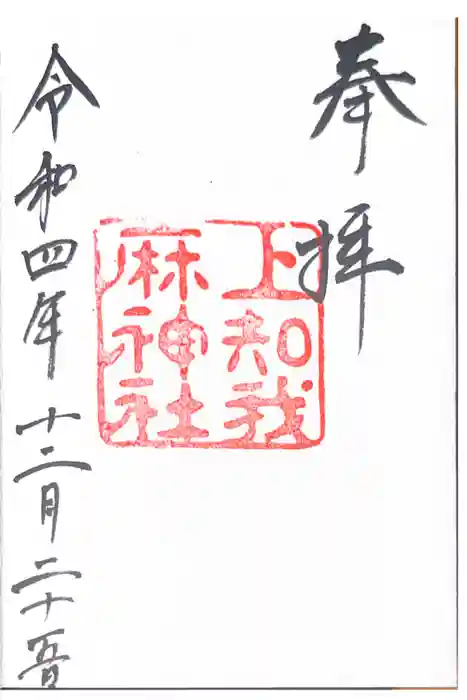 奉拝
上知我
麻神社
令和四年十二月二十五日